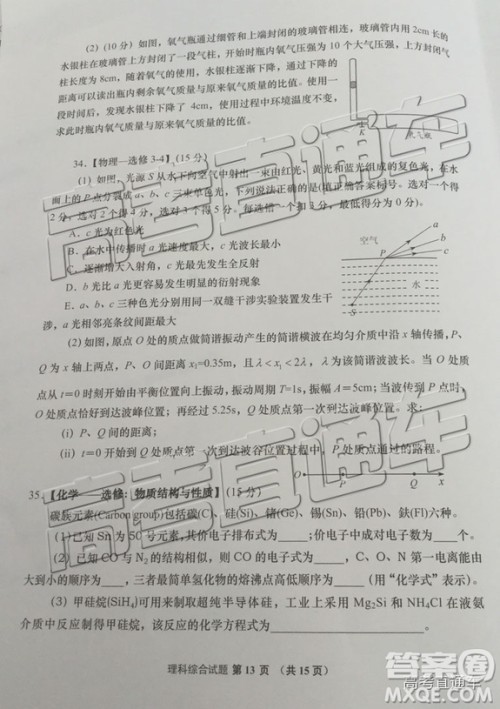 (2)(10 分) 如图，氧气瓶通过细管和上端封闭的玻璃管相连，玻璃管内用 2cm 长的
水银柱在玻璃管上方封闭了一段气柱，开始时瓶内氧气压强为 10 个大气压，上方封闭气
柱长度为 8cm，随着氧气的使用，水银柱逐渐下降，通过下降
距离可以读出瓶内剩余氧气质量与原来氧气质量的比值。使用一
段时间后，发现水银柱下降了 4cm，使用过程中环境温度不变，
求此时瓶内氧气质量与原来氧气质量的比值。
K
氧气瓶
34.【物理—选修 3-4】(15 分)
(1) 如图，光源 S 从水下向空气中射出一束由红光、黄光和蓝光组成的复色光，在水
面上的 P 点分裂成 a、b、c 三束单色光，下列说法正确的是(填正确答案标号。选对 1 个得
2 分，选对 2 个得 4 分，选对 3 个得 5 分。每选错一个扣 3 分，最低得分为 0 分)。
A、c 光为红光
B、在水中传播时 a 光速度最大
C、逐渐增大入射角，c 光最先发生全反射
D、b 光比 a 光更容易发生明显衍射
E、a、b、c 三种色光分别用同一双缝干涉实验装置发生干涉，
a 光相邻亮条纹间距最大
空气
水
P
S
a
b
c
(2) 如图，原点 O 处的质点做简谐振动产生的简谐横波在均匀介质中沿 x 轴传播，P、
Q 为 x 轴上两点，P、O 间距离 x₁=0.35m，且 λ＜x₁＜2λ，λ 为该简谐波波长。当 O 处质
点从 t＝0 时刻开始由平衡位置向上振动，振动周期 T=1s，振幅 A＝5cm；当波传到 P 点时，
O 处质点恰好到达波峰位置；再经过 5.25s，Q 处质点第一次到达波峰位置。求：
(i) P、Q 间的距离；
(ii) t＝0 开始到 Q 处质点第一次到达波谷位置过程中，P 处质点通过的路程。
O
P
Q
35.【化学——选修：物质结构与性质】(15 分)
碳族元素(Carbon group)包括碳(C)、硅(Si)、锗(Ge)、锡(Sn)、铅(Pb)、鈇(Fl)六种。
(1) 已知 Sn 为 50 号元素，其价电子排布式为____；价电子中成对电子数为____个。
(2) 已知 CO 与 N₂ 的结构相似，则 CO 的电子式为____，C、O、N 的第一电离能由
大到小的顺序为____，三者最简单氢化物的熔沸点高低顺序为____（用“化学式”表示）。
(3) 甲硅烷(SiH₄)可用来制取超纯半导体硅，工业上采用 Mg₂Si 和 NH₄Cl 在液氨
介质中反应制得甲硅烷，该反应的化学方程式为____。
理科综合试题 第 13 页 （共 15 页）
高考直通车
高考直通车
答案圈
高考直通车
MXQE.COM